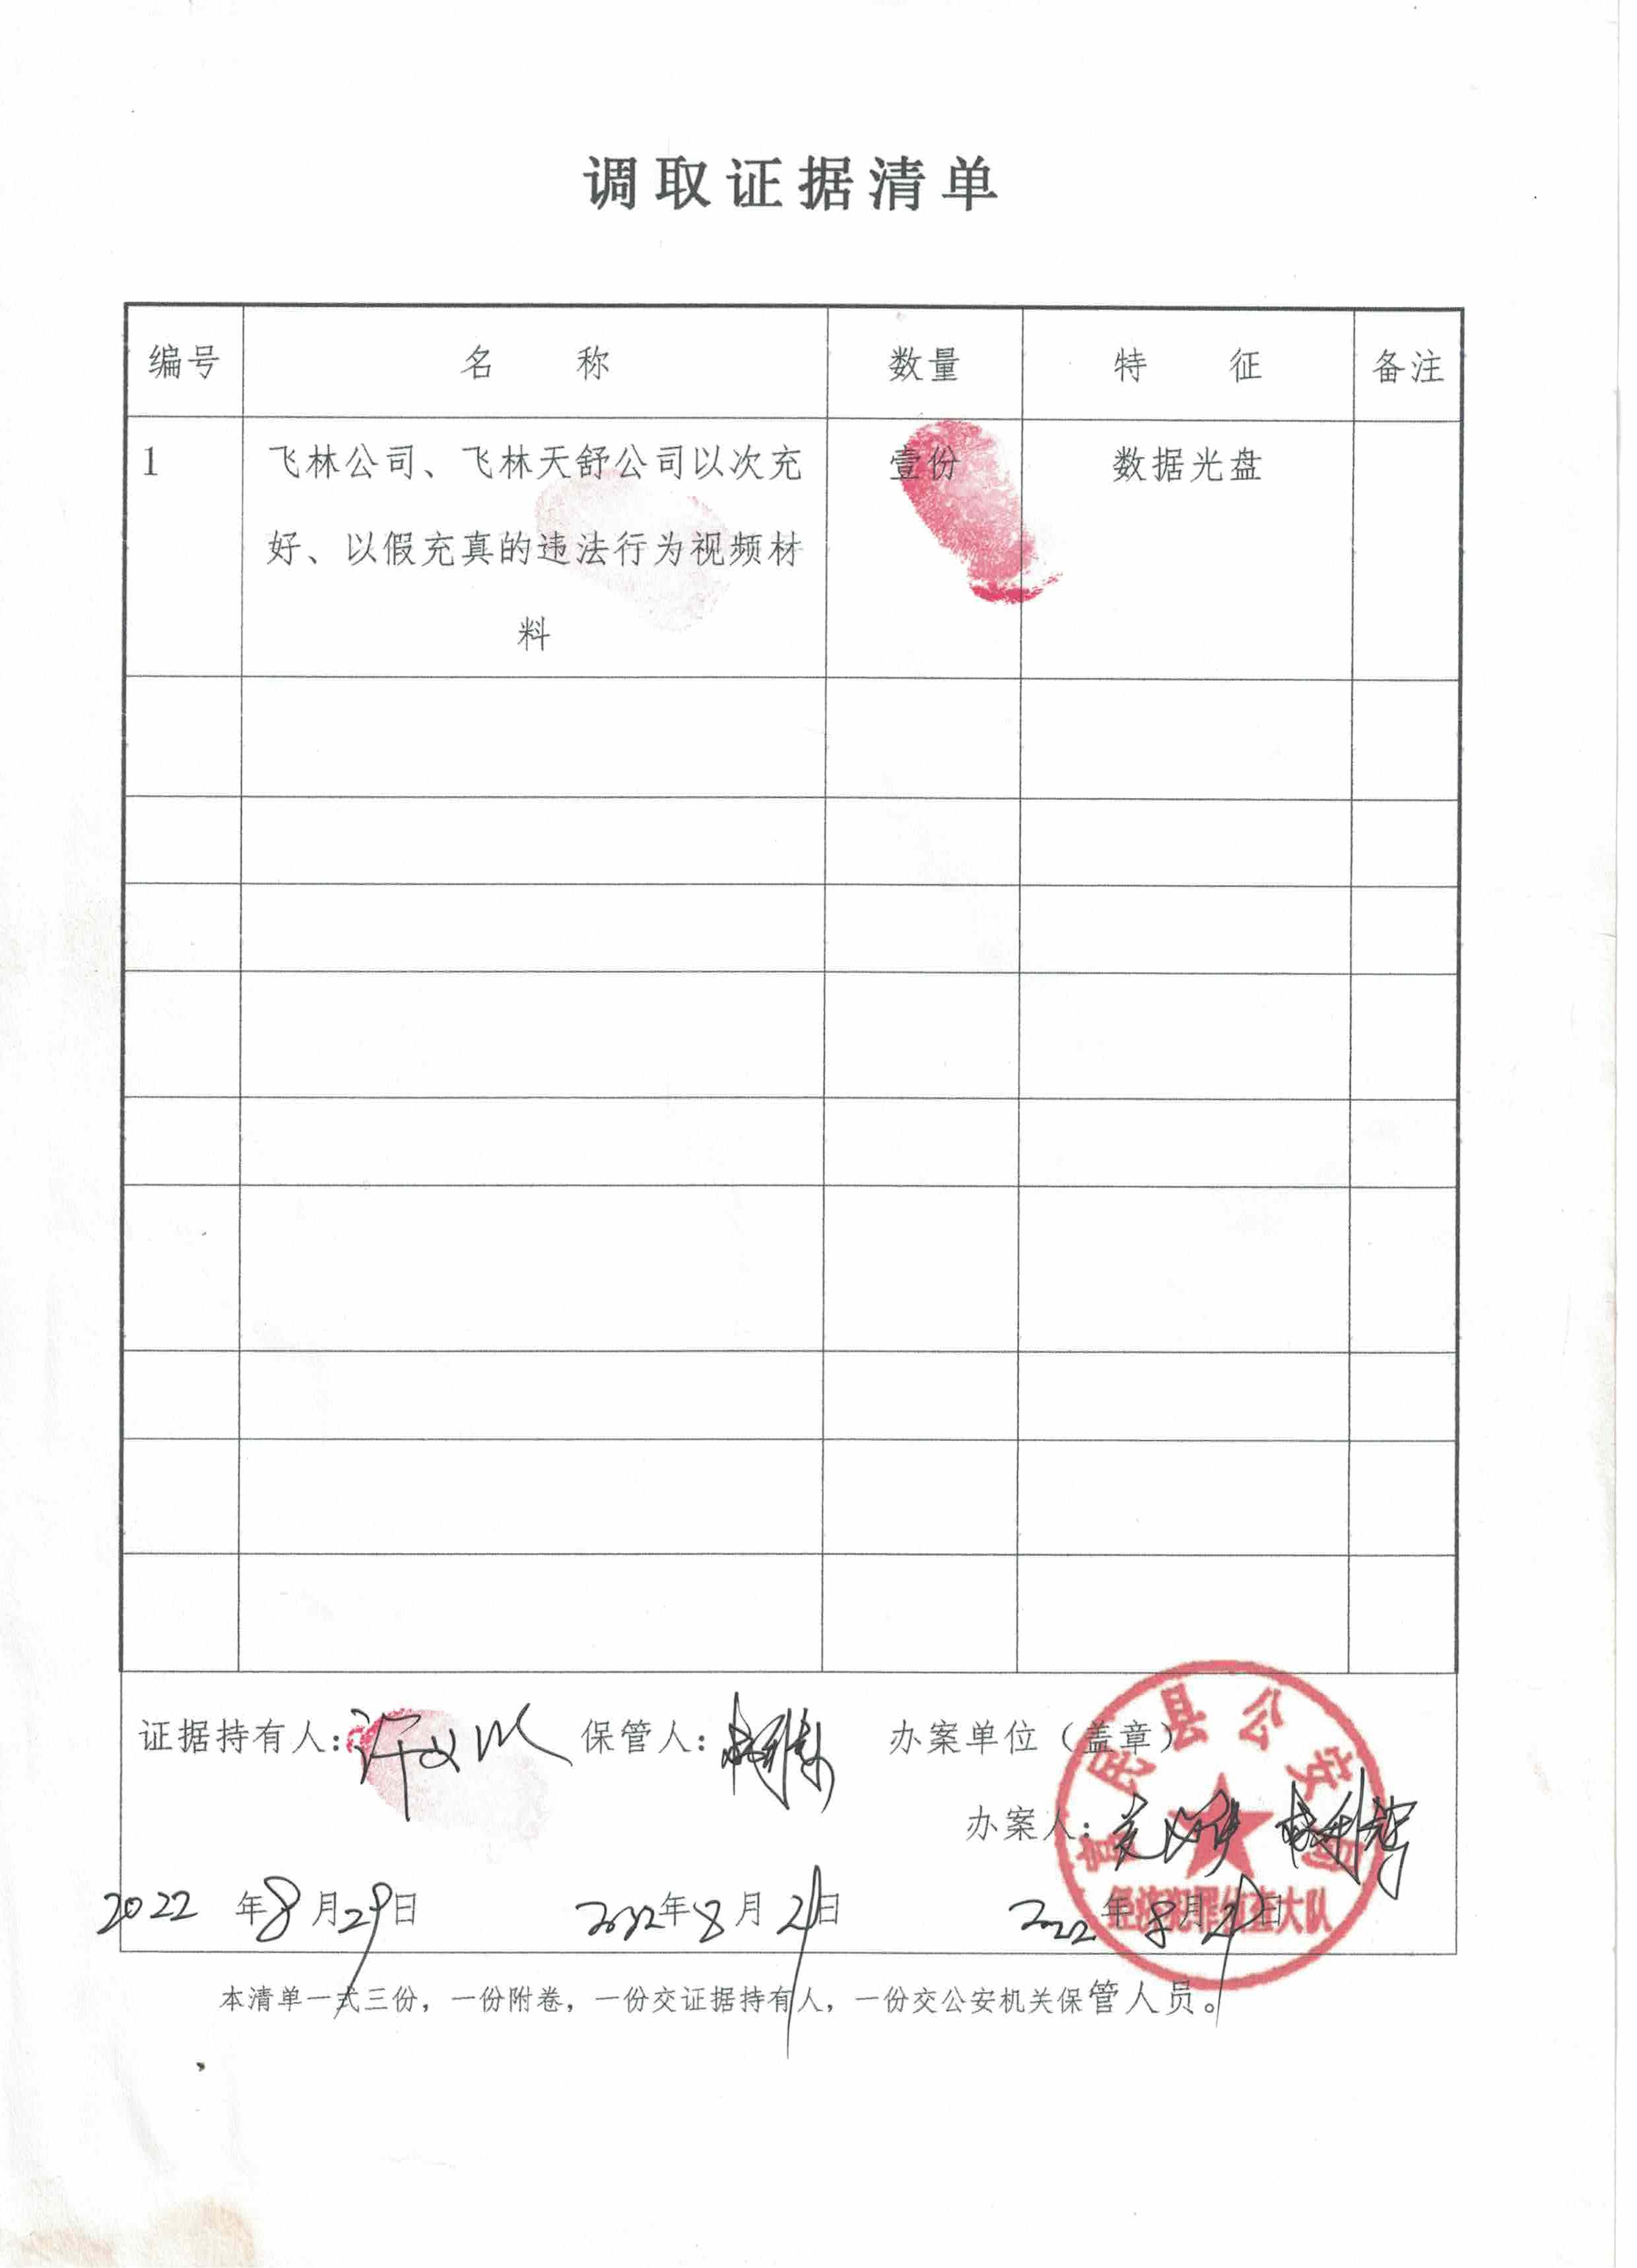 调取证据清单
编号 名 称 数量 特 征 备注
1 飞林公司、飞林天舒公司以次充 壹份 数据光盘
好、以假充真的违法行为视频材
料
证据持有人: 保管人: 办案单位（盖章）
办案人:
富民县公安局
经济犯罪侦查大队
2022 年8月29日 2022年8月29日 2022年8月29日
本清单一式三份，一份附卷，一份交证据持有人，一份交公安机关保管人员。